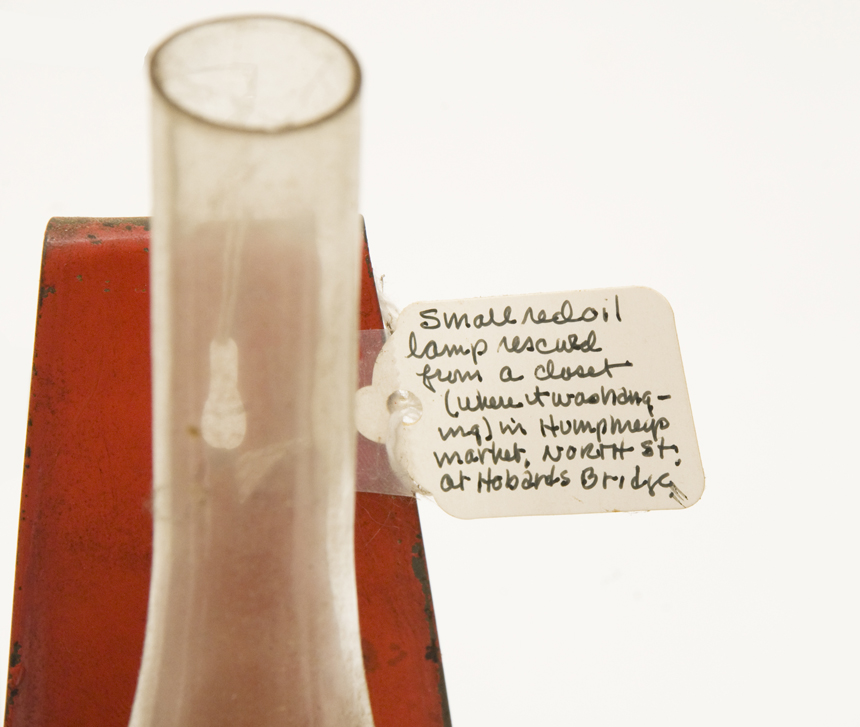 Small red oil
lamp rescued
from a closet
(where it was hang-
ing) in Humphreys
market, NORTH St.
at Hobards Bridge.